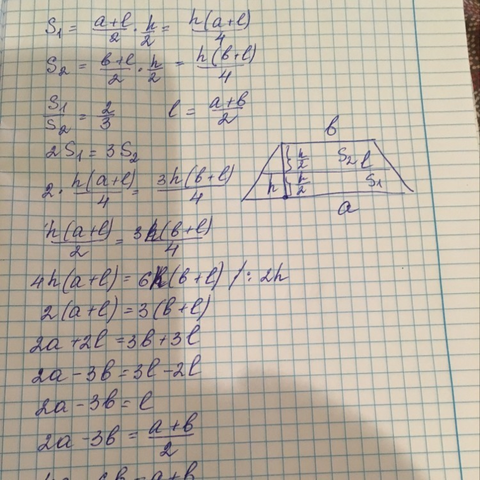 S₁ = (a+l)/2 · h/2 = h(a+l)/4
S₂ = (b+l)/2 · h/2 = h(b+l)/4
S₁/S₂ = 2/3 l = (a+b)/2
2S₁ = 3S₂
2 · h(a+l)/4 = 3h(b+l)/4
h(a+l)/2 = 3h(b+l)/4
4h(a+l) = 6h(b+l) /: 2h
2(a+l) = 3(b+l)
2a + 2l = 3b + 3l
2a - 3b = 3l - 2l
2a - 3b = l
2a - 3b = (a+b)/2
b
h/2 S₂ l
h h/2 S₁
a